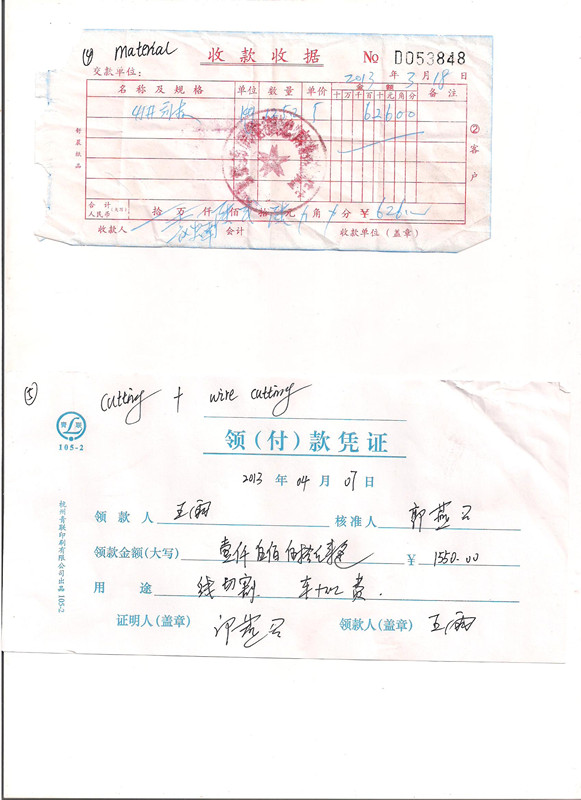 (4) material
收款收据 No D053848
交款单位: 2013年3月18日
名称及规格 单位 数量 单价 金额 备注
十 万 千 百 十 元 角 分
5 62600
②客户
合计人民币(大写) 拾 万 仟 佰 拾 元 角 分 ¥626
收款人 会计 收款单位(盖章)
⑤ cutting + wire cutting
青联
105-2
领(付)款凭证
2013年04月07日
领款人 王雨 核准人 郭燕
领款金额(大写) 壹仟伍佰伍拾元 ¥1550.00
用途 线切割 车加工费.
证明人(盖章) 燕 领款人(盖章) 王雨
杭州青联印刷有限公司出品 105-2